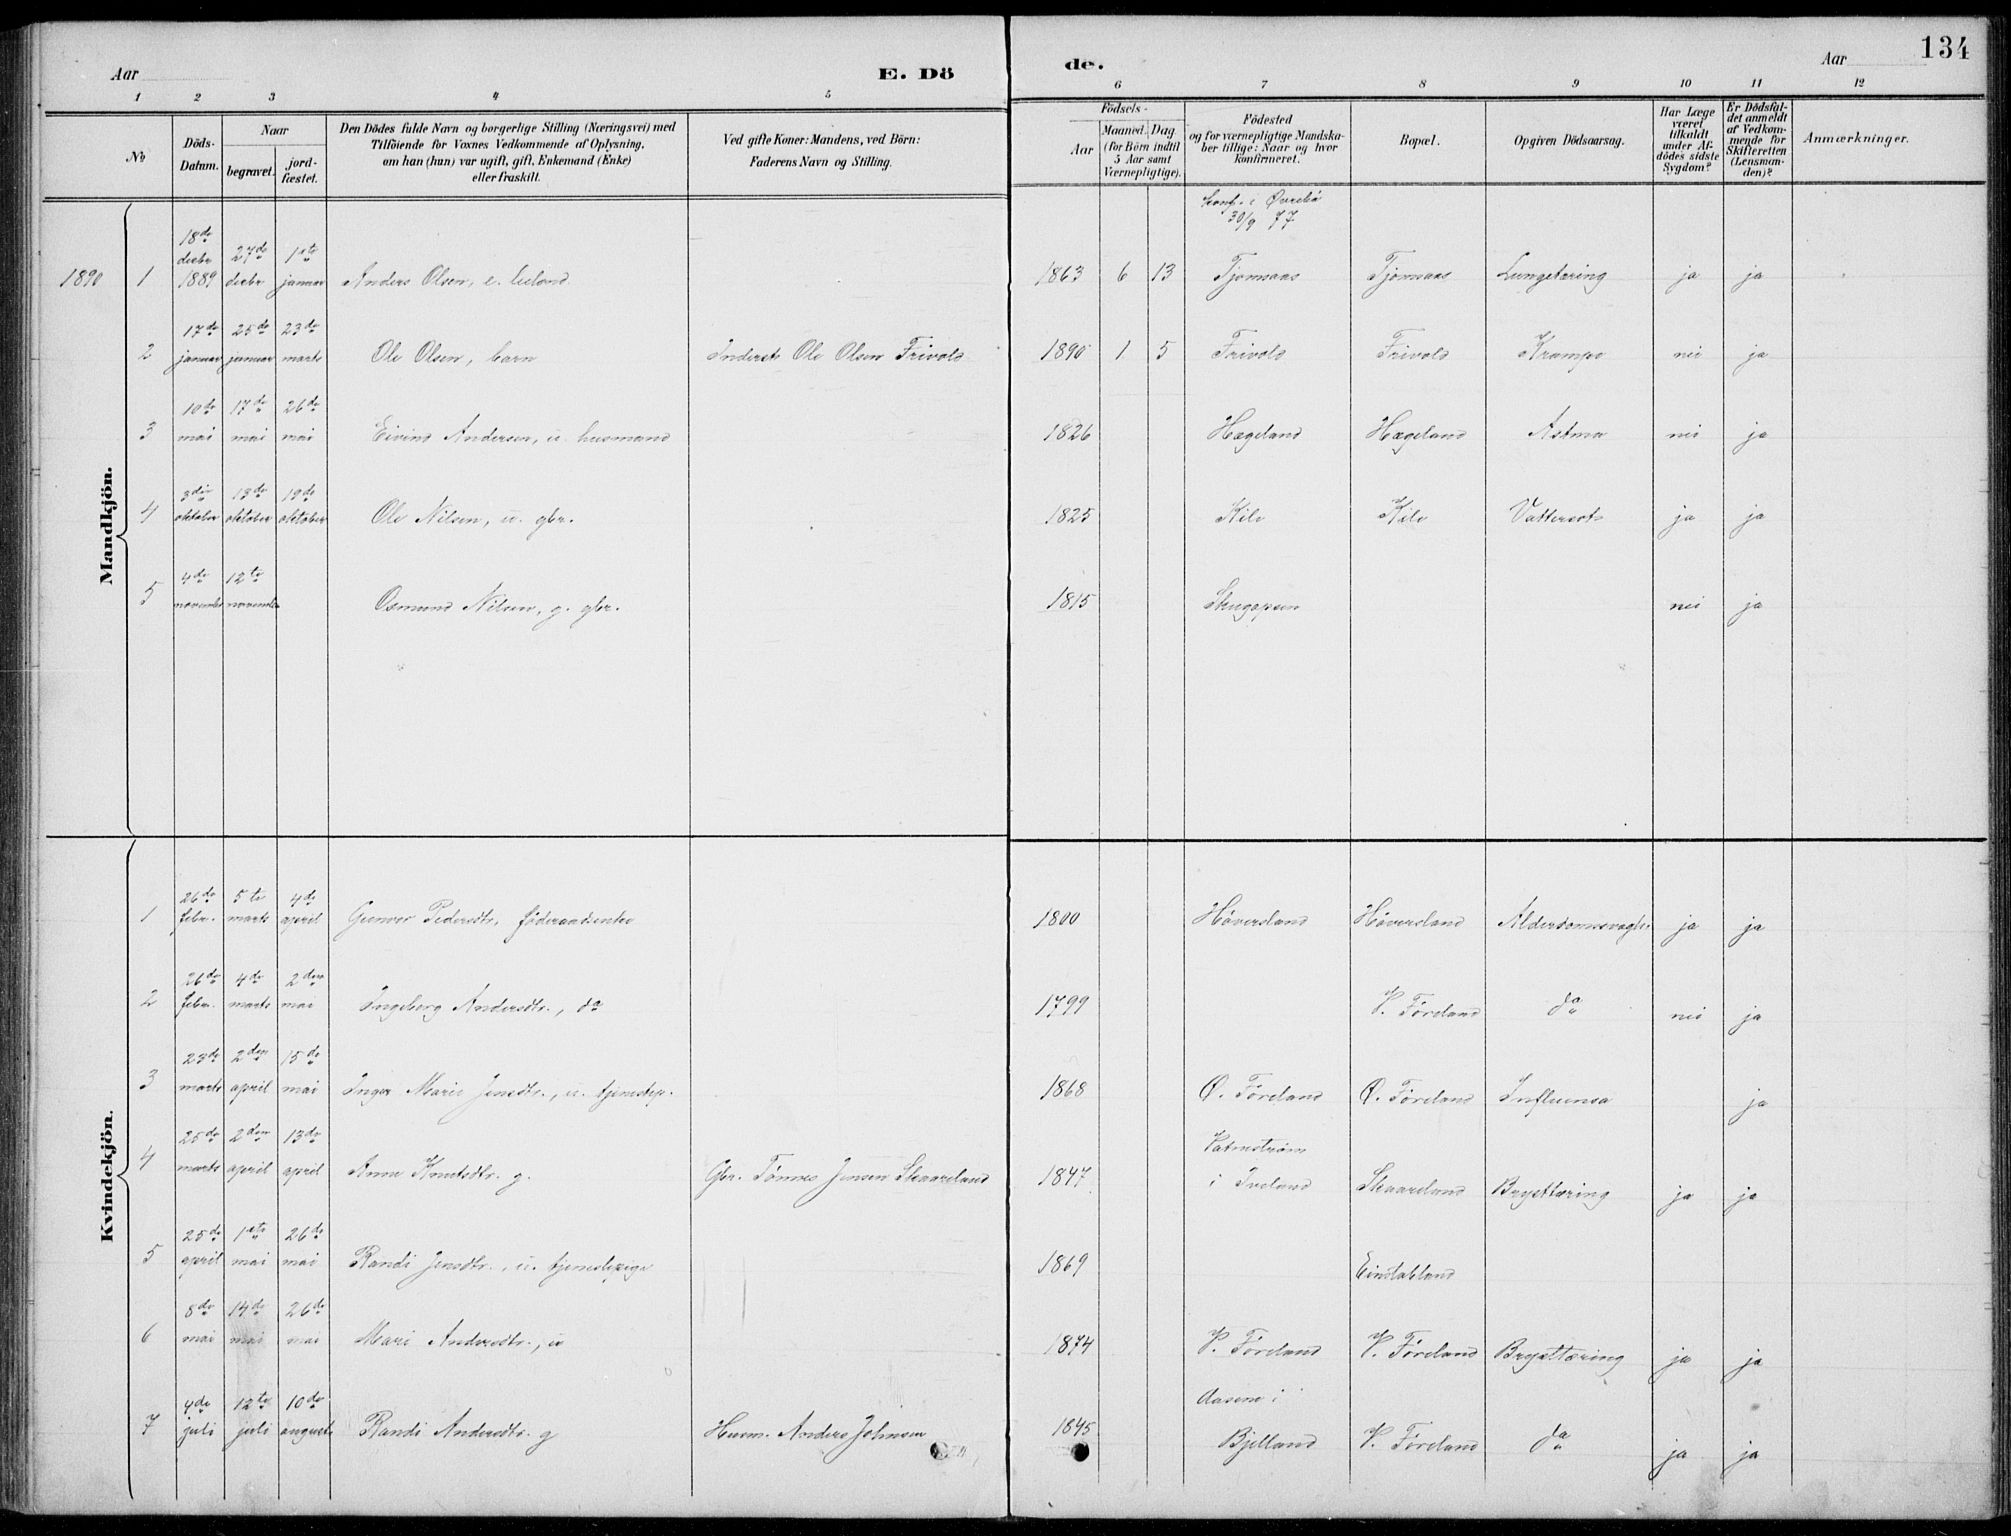 134
Aar
E. Dö
de.
Aar
1 2 3 4 5 6 7 8 9 10 11 12
No
Döds-
Datum.
Naar
begravet.
jord-
fæstet.
Den Dödes fulde Navn og borgerlige Stilling (Næringsvei) med
Tilföiende for Voxnes Vedkommende af Oplysning,
om han (hun) var ugift, gift, Enkemand (Enke)
eller fraskilt.
Ved gifte Koner: Mandens, ved Börn:
Faderens Navn og Stilling.
Födsels-
Aar
Maaned. Dag
(for Börn indtil
5 Aar samt
Værnepligtige).
Födested
og for værnepligtige Mandska-
ber tillige: Naar og hvor
konfirmeret.
Bopæl.
Opgiven Dödsaarsag.
Har Læge
været
tilkaldt
under Af-
dödes sidste
Sygdom?
Er Dödsfal-
det anmeldt
af Vedkom-
mende for
Skifteretten
(Lensman-
den)?
Anmærkninger.
Mandkjön.
Konf. i Øvrebø
30/9 77
18de decbr 27de 1ste
1890 1 1889 decbr januar Anders Olsen, e. 1863 6 13 Tjomaas Tjomaas Lungetæring ja ja
17de 25de 23de
2 januar januar marts Ole Olsen, barn Inderst Ole Olsen Frivold 1890 1 5 Frivold Frivold Krampe nei ja
10de 17de 26de
3 mai mai mai Eivind Andersen, u. husmand 1826 Hægeland Hægeland Astma nei ja
3die 13de 19de
4 oktober oktober oktober Ole Nilsen, u. gbr. 1825 Kile Kile Vattersot ja ja
4de 12te
5 november november Osmund Nilsen, g. gbr. 1815 nei ja
Kvindekjön.
26de 5te 4de
1 febr. marts april Gunvor Pedersdtr. føderaadsenke 1800 Høversland Høversland Alderdomssvagh. ja ja
26de 4de 2den
2 febr. marts mai Ingeborg Andersdtr., do 1799 V. Føreland do nei ja
23de 2den 15de
3 marts april mai Inger Marie Jensdtr., u. tjenestep. 1868 Ø. Føreland Ø. Føreland Influensa ja
25de 2den 13de Vatnstrøm
4 marts april april Anne Knutsdtr. g. Gbr. Tønnes Jensen Skaareland 1847 i Iveland Skaareland Brysttæring ja ja
25de 1ste 26de
5 april mai mai Randi Jensdtr., u. tjenestepige 1869 Einstabland
8de 14de 26de
6 mai mai mai Mari Andersdtr., u 1874 V. Føreland V. Føreland Brysttæring ja ja
4de 12te 10de Aasene i
7 juli juli august Randi Andersdtr. g Husm. Anders Johnsen 1845 Bjelland V. Føreland do ja ja